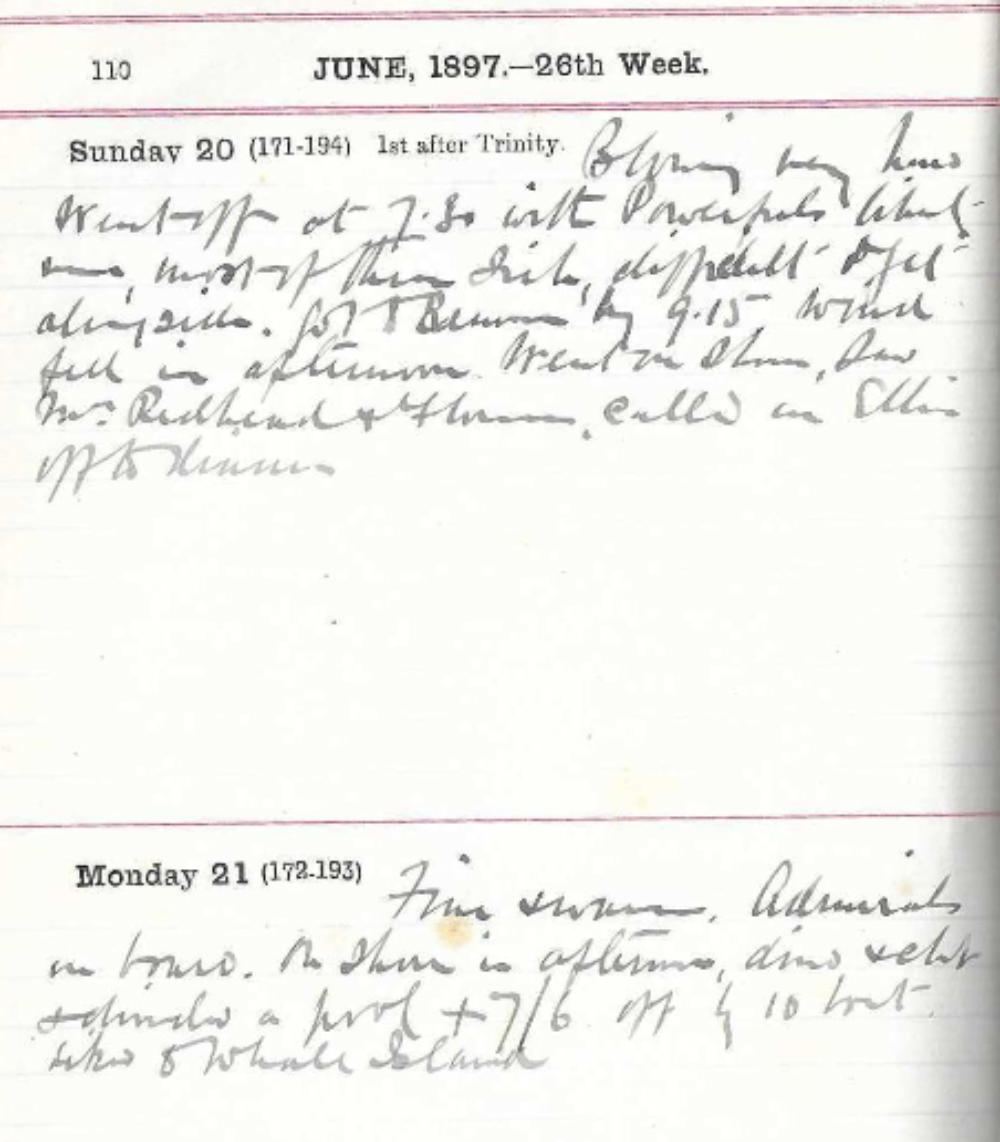 110 JUNE, 1897.—26th Week.
Sunday 20 (171-194) 1st after Trinity. Blowing very hard
Went off at 7.30 with Powerfuls liberty
men, most of them Irish, difficult to get
alongside. Got to by 9.15 Wind
fell in afternoon. Went on shore, saw
Mrs Redhead & Florence, called on Ellis
off to dinner
Monday 21 (172-193) Fine & warm. Admirals
on board. On shore in afternoon, dined at club
a pool + 7/6 off by 10 boat.
to Whale Island